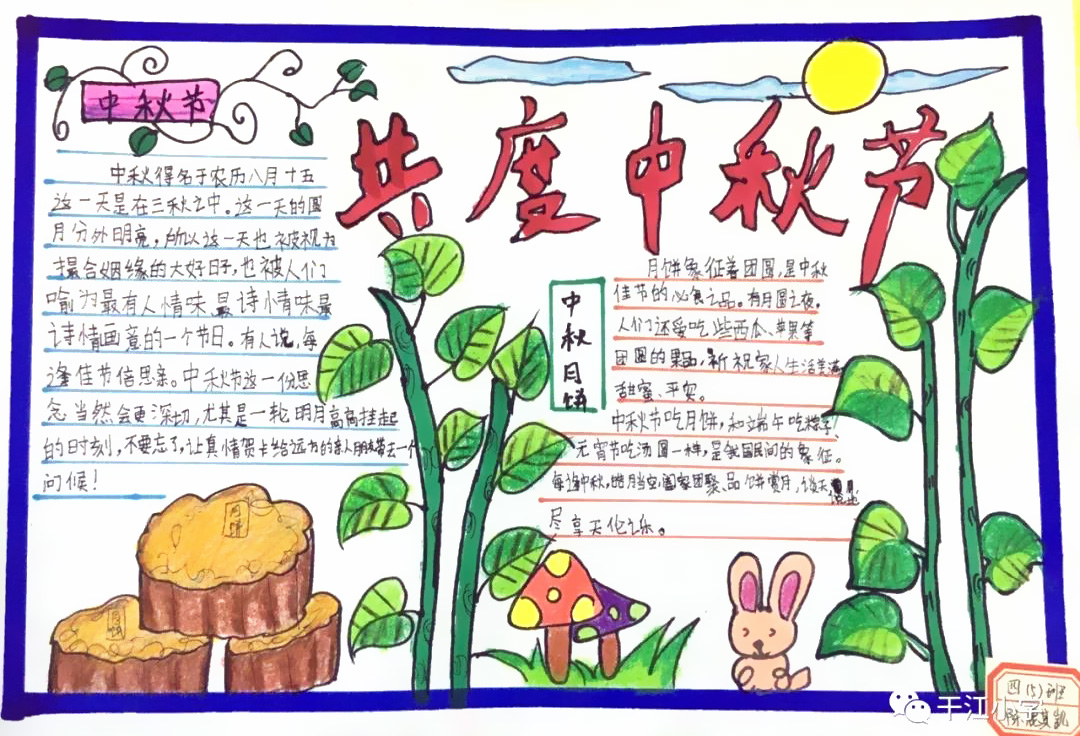 共度中秋节
中秋节
中秋得名于农历八月十五
这一天是在三秋之中。这一天的圆
月分外明亮，所以这一天也被视为
撮合姻缘的大好日子，也被人们
喻为最有人情味最诗情味最
诗情画意的一个节日。有人说，每
逢佳节倍思亲。中秋节这一份思
念当然会更深切，尤其是一轮明月高高挂起
的时刻，不要忘了，让真情贺卡给远方的亲人朋友带去一个
问候！
中秋月饼
月饼象征着团圆，是中秋
佳节的必食之品。有月圆之夜。
人们还爱吃些西瓜、苹果等
团圆的果品，祈祝家人生活美满
甜蜜、平安。
中秋节吃月饼，和端午吃粽子、
元宵节吃汤圆一样，是我国民间的象征。
每逢中秋，皓月当空，阖家团聚、品饼赏月，谈天
尽享天伦之乐。
月饼
月饼
四(5)班
陈
凯
干江小学